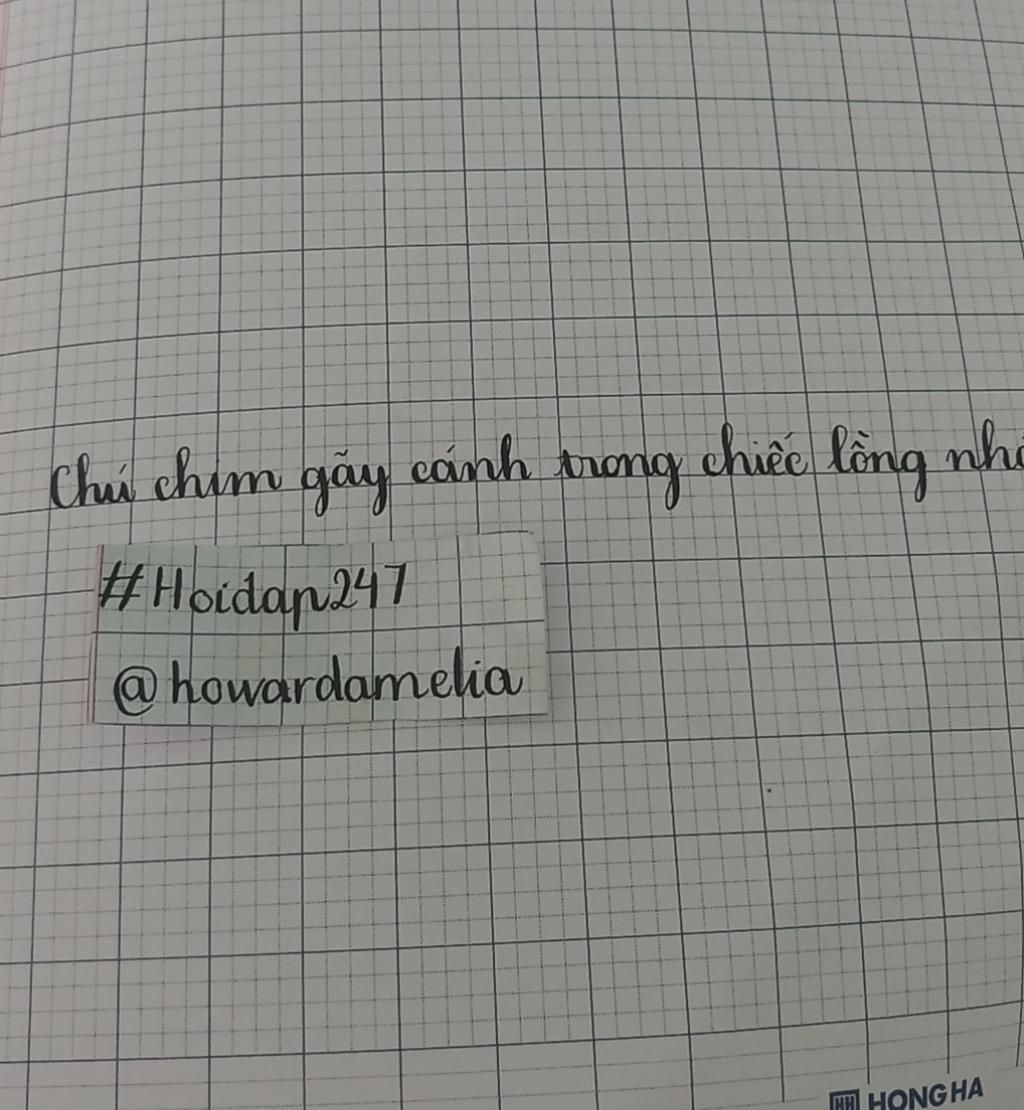 Chú chim gãy cánh trong chiếc lồng
#Hoidap247
@howardamelia
HH HONG HA